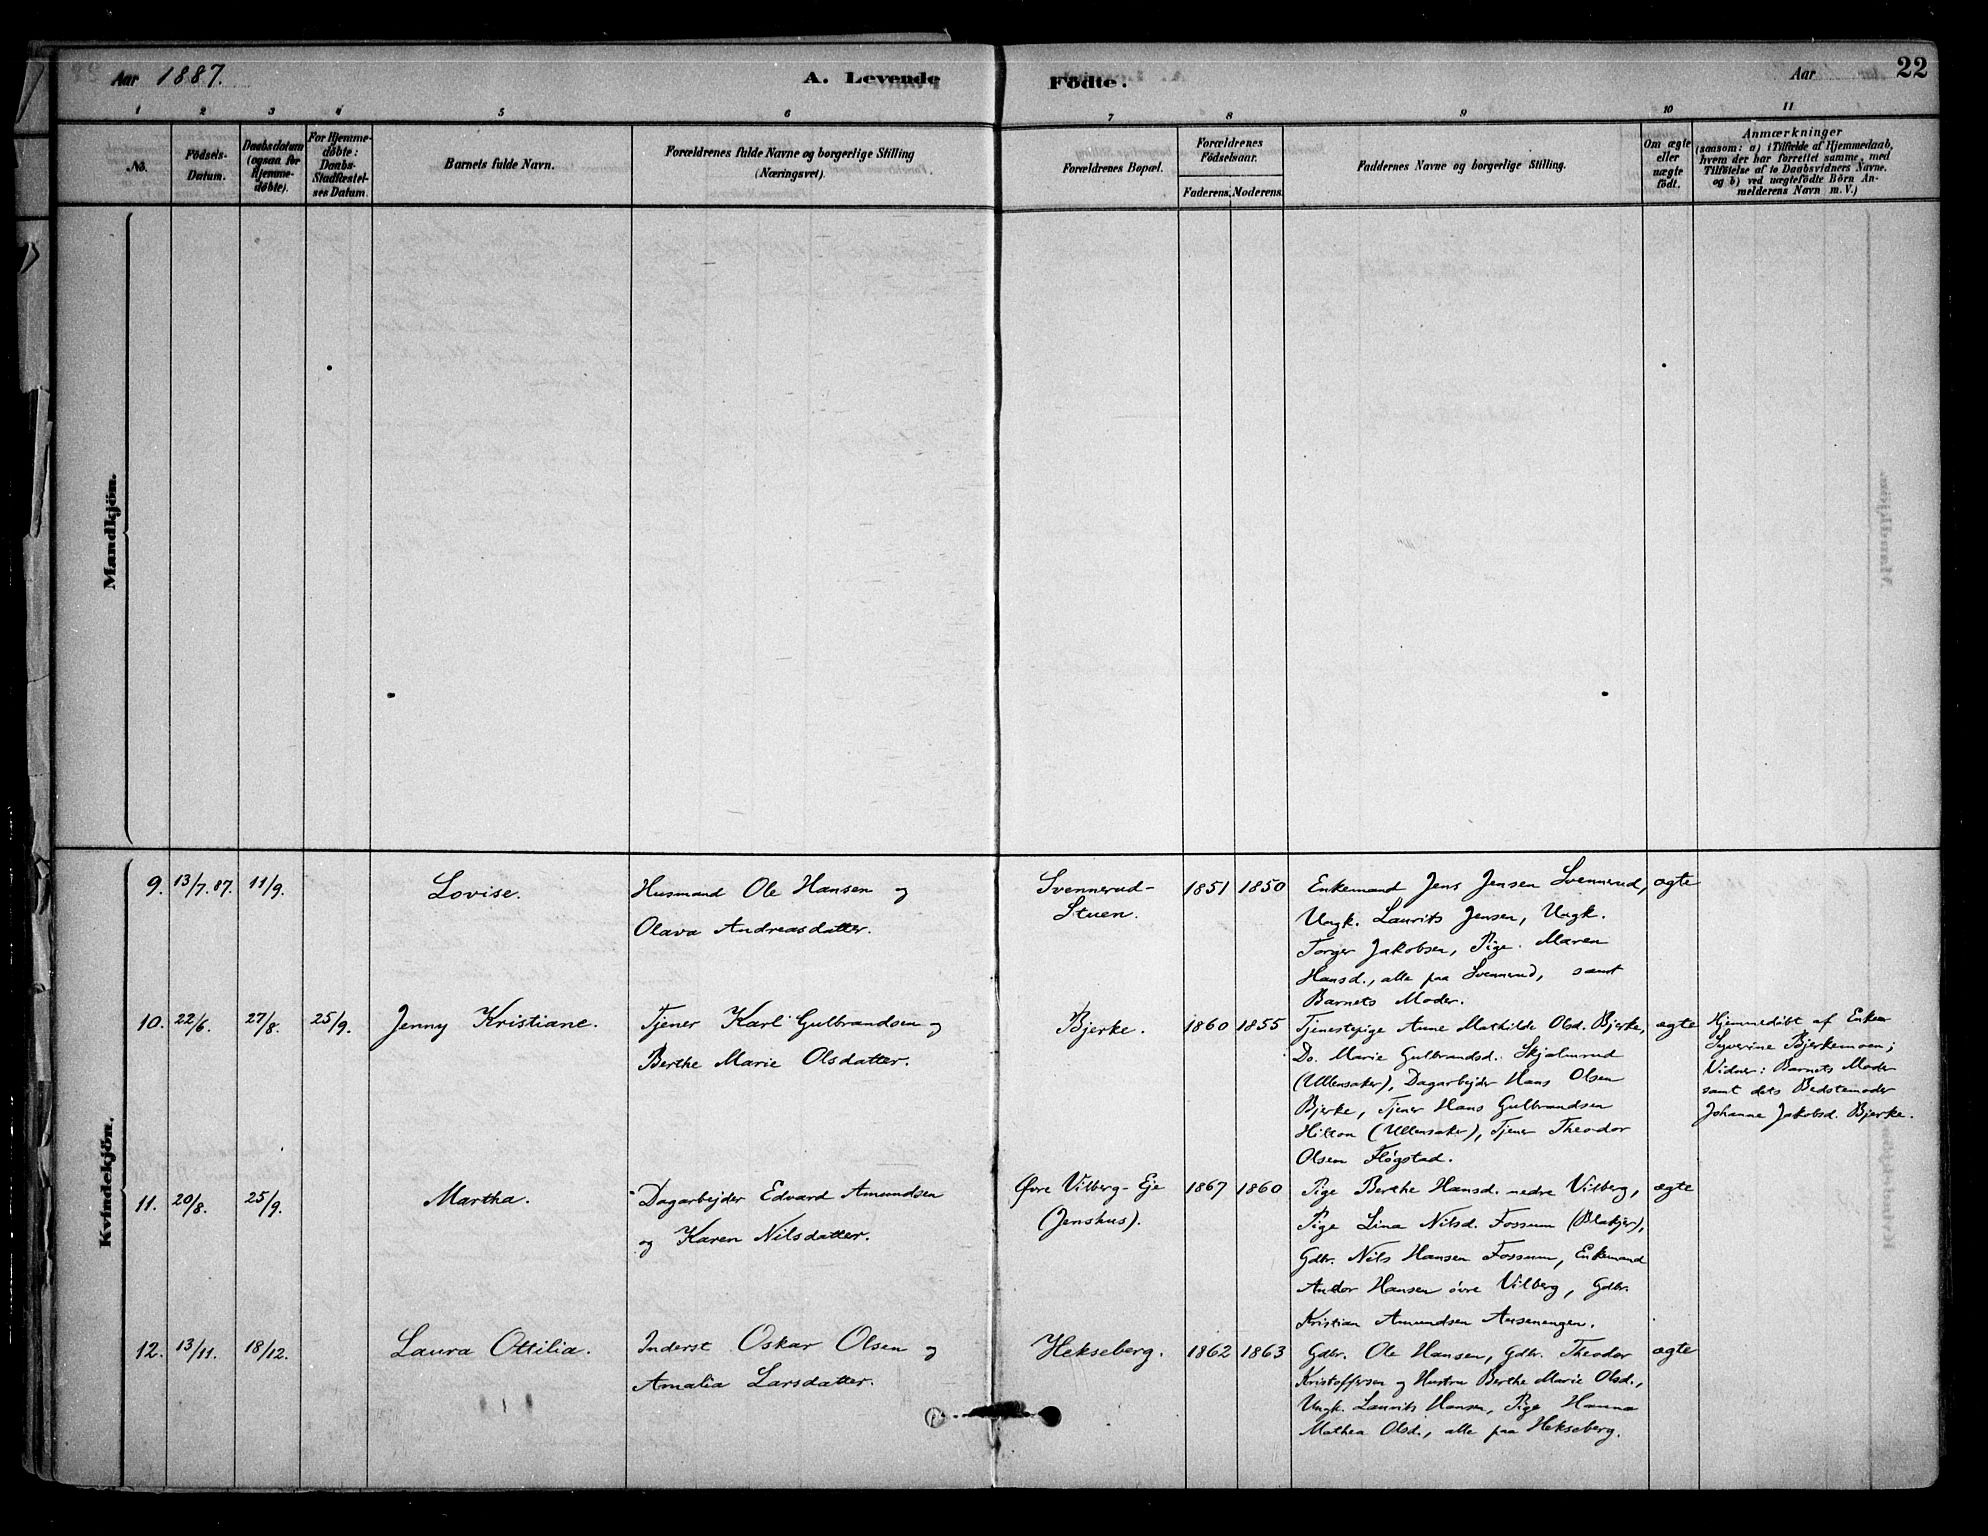 Aar 1887.
A. Levende Födte.
Aar
22
1 2 3 4 5 6 7 8 9 10 11
No.
Födsels-Datum.
Daabsdatum (ogsaa for Hjemme-døbte).
For Hjemme-døbte: Daabs-Stadfæstel-ses Datum.
Barnets fulde Navn.
Forældrenes fulde Navne og borgerlige Stilling (Næringsvei).
Forældrenes Bopæl.
Forældrenes Födselsaar.
Faderens. Moderens.
Faddernes Navne og borgerlige Stilling.
Om ægte eller uægte födt.
Anmærkninger
(saasom: a) i Tilfælde af Hjemmedaab,
hvem der har forrettet samme, med
Tilföielse af to Daabsvidners Navne.
og b) ved uægtefödte Börn An-
melderens Navn m. V.)
Mandkjön.
Kvindekjön.
9. 13/7. 87. 11/9. Lovise.
Husmand Ole Hansen og
Olava Andreasdatter.
Svennerud-
Stuen.
1851 1850
Enkemand Jens Jensen Svennerud,
Ungk. Laurits Jensen, Ungk.
Torger Jakobsen, Pige Maren
Hansd., alle paa Svennerud, samt
Barnets Moder.
ægte
10. 22/6. 27/8. 25/9. Jenny Kristiane.
Tjener Karl Gulbrandsen og
Berthe Marie Olsdatter.
Bjerke.
1860 1855
Tjenestepige Anne Mathilde Olsd. Bjerke,
Do. Marie Gulbrandsd. Skjalmrud
(Ullensaker), Dagarbejder Hans Olsen
Bjerke, Tjener Hans Gulbrandsen
Hilton (Ullensaker), Tjener Theodor
Olsen Fløgstad.
ægte
Hjemmedøbt af Enken
Syverine Bjerkemoen;
Vidner: Barnets Moder
samt dets Bedstemoder
Johanne Jakobsd. Bjerke.
11. 20/8. 25/9. Martha.
Dagarbejder Edvard Amundsen
og Karen Nilsdatter.
Øvre Vilberg-Eje
(Jenshus).
1867 1860
Pige Berthe Hansd. nedre Vilberg,
Pige Lina Nilsd. Fossum (Blakjer),
Gdbr. Nils Hansen Fossum, Enkemand
Andor Hansen øvre Vilberg, Gdbr.
Kristian Amundsen
ægte
12. 13/11. 18/12. Laura Ottilia.
Inderst Oskar Olsen og
Amalia Larsdatter.
Hekseberg.
1862 1863
Gdbr. Ole Hansen, Gdbr. Theodor
Kristoffersen og Hustru Berthe Marie Olsd.,
Ungk. Laurits Hansen, Pige Hanna
Mathea Olsd., alle paa Hekseberg.
ægte